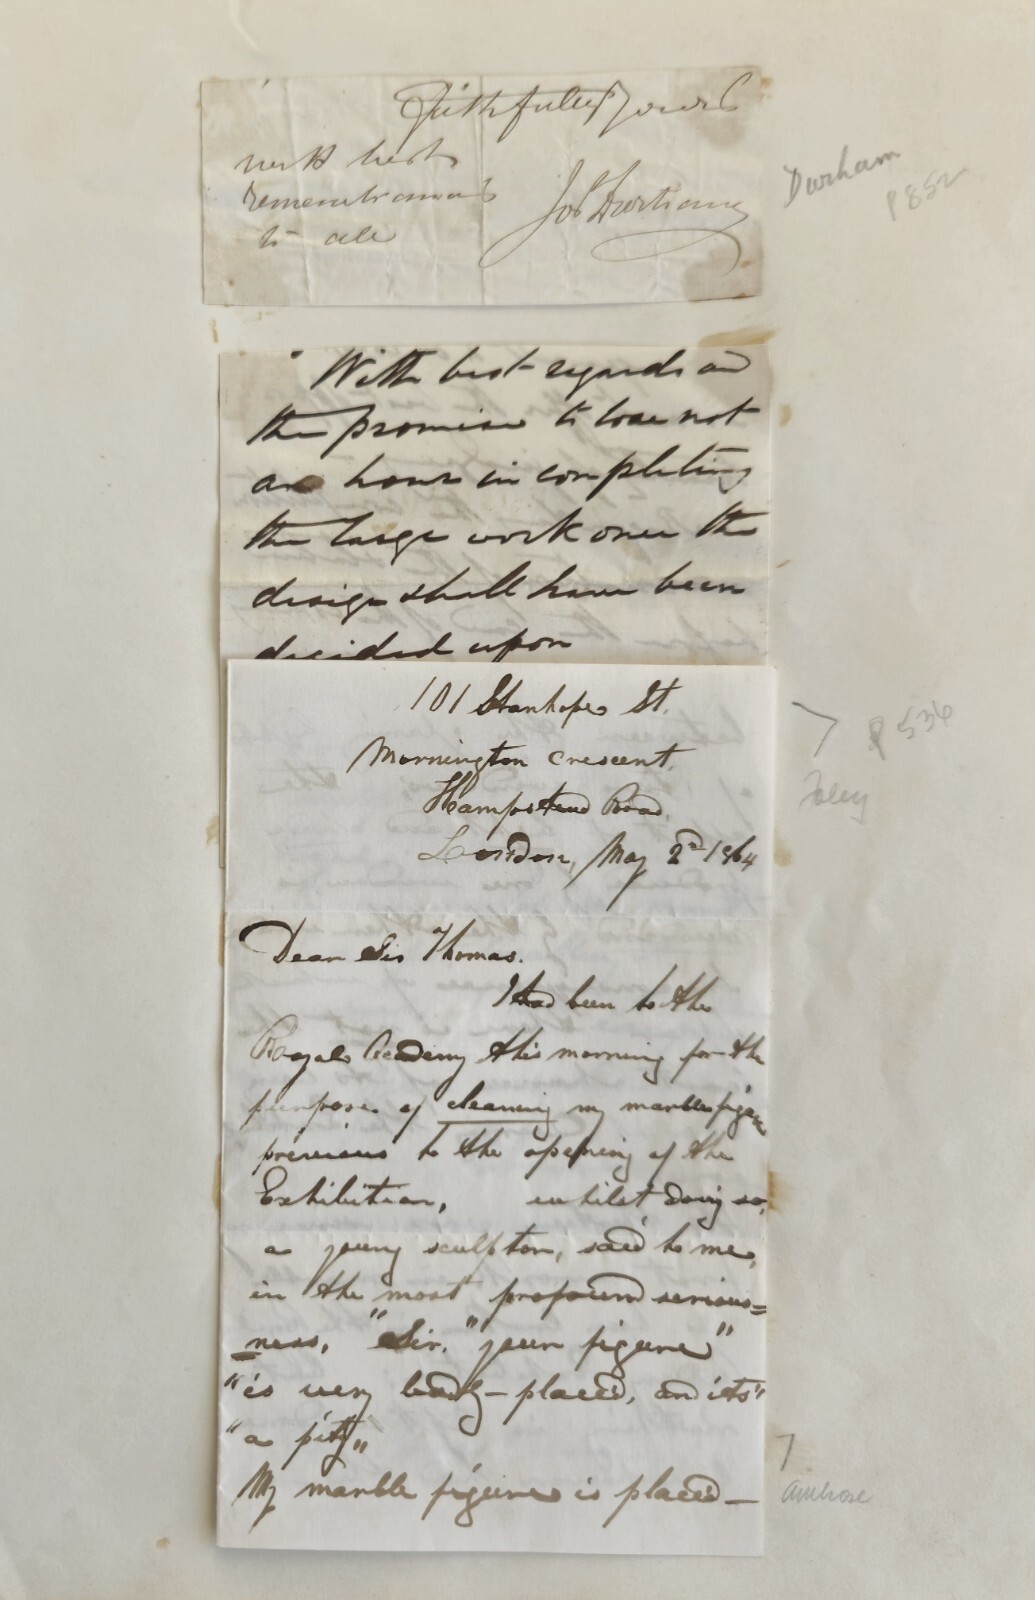 Faithfully Yours
with best
remembrances
to all
Jos Durham
Durham
P 852
With best regards and
the promise to lose not
an hour in completing
the large work once the
design shall have been
decided upon
P 536
Foley
101 Stanhope St.
Mornington Crescent,
Hampstead Road,
London, May 2nd 1864
Dear Sir Thomas.
I had been to the
Royal Academy this morning for the
purpose of cleaning my marble figure
previous to the opening of the
Exhibition, whilst doing so,
a young sculptor, said to me,
in the most profound serious=
=ness, "Sir, "your figure"
"is very badly-placed, and its"
"a pity"
My marble figure is placed—
Ambrose